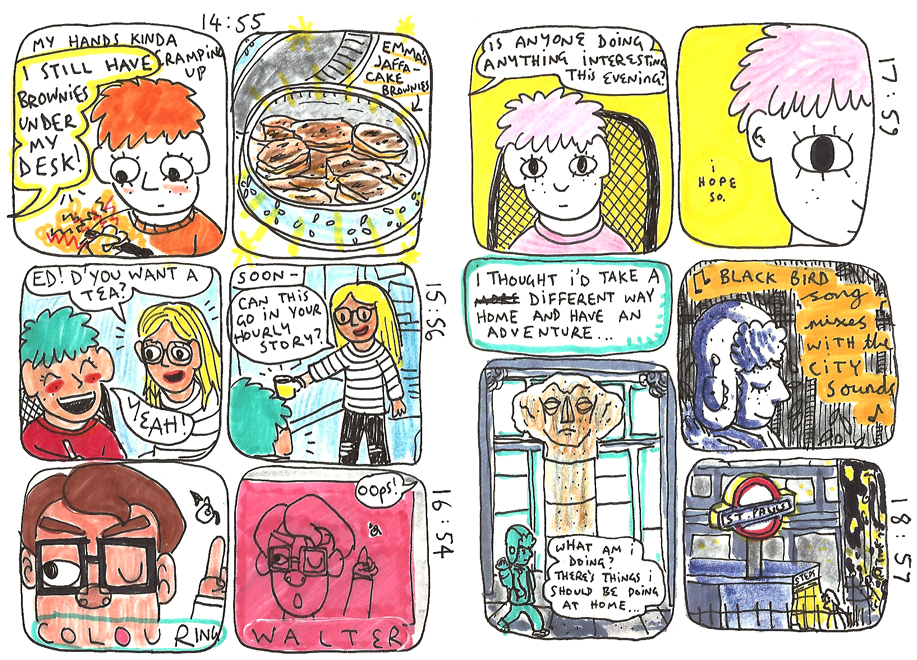 14:55
MY HANDS KINDA
CRAMPING
UP
I STILL HAVE
BROWNIES
UNDER
MY
DESK!
EMMA'S
JAFFA-
CAKE
BROWNIES
ED! D'YOU WANT A
TEA?
YEAH!
SOON-
CAN THIS
GO IN YOUR
HOURLY
STORY?
15:56
COLOURING
OOPS!
WALTER
16:54
IS ANYONE DOING
ANYTHING INTERESTING
THIS EVENING?
i
HOPE
SO.
17:59
I THOUGHT i'D TAKE A
DIFFERENT WAY
HOME AND HAVE AN
ADVENTURE...
BLACK BIRD
song
mixes
WITH the
CiTY
Sounds
WHAT AM i
DOING?
THERE'S THINGS i
SHOULD BE DOING
AT HOME...
ST. PAULS
18:57